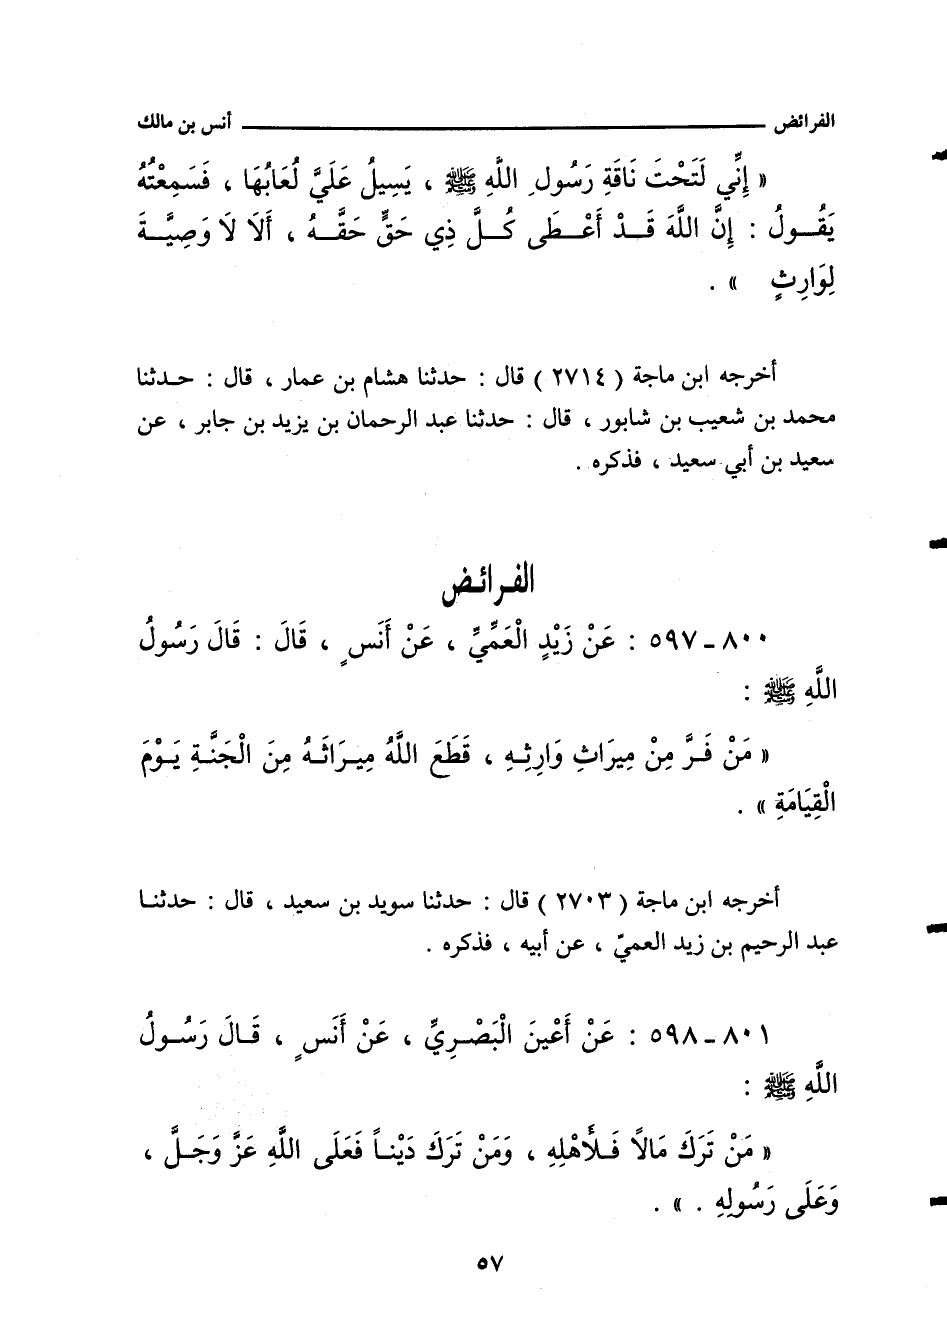 الفرائض ــــــــــــــــ أنس بن مالك
« إِنِّي لَتَحْتَ نَاقَةِ رَسُولِ اللَّهِ ﷺ ، يَسِيلُ عَلَيَّ لُعَابُهَا ، فَسَمِعْتُهُ
يَقُـولُ : إِنَّ اللَّهَ قَـدْ أَعْـطَى كُـلَّ ذِي حَقٍّ حَقَّـهُ ، أَلَا لَا وَصِيَّـةَ
لِوَارِثٍ » .
أخرجه ابن ماجة ( ٢٧١٤ ) قال : حدثنا هشام بن عمار ، قال : حـدثنا
محمد بن شعيب بن شابور ، قال : حدثنا عبد الرحمان بن يزيد بن جابر ، عن
سعيد بن أبي سعيد ، فذكره .
الفرائض
٨٠٠ - ٥٩٧ : عَنْ زَيْدٍ الْعَمِّيِّ ، عَنْ أَنَسٍ ، قَالَ : قَالَ رَسُولُ
اللَّهِ ﷺ :
« مَنْ فَـرَّ مِنْ مِيرَاثِ وَارِثِـهِ ، قَطَعَ اللَّهُ مِيـرَاثَـهُ مِنَ الْجَنَّـةِ يَـوْمَ
الْقِيَامَةِ » .
أخرجه ابن ماجة ( ٢٧٠٣ ) قال : حدثنا سويد بن سعيد ، قال : حدثنـا
عبد الرحيم بن زيد العميّ ، عن أبيه ، فذكره .
٨٠١ - ٥٩٨ : عَنْ أَعْيَنَ الْبَصْـرِيِّ ، عَنْ أَنَسٍ ، قَـالَ رَسُـولُ
اللَّهِ ﷺ :
« مَنْ تَرَكَ مَالًا فَـلِأَهْلِهِ ، وَمَنْ تَرَكَ دَيْنـاً فَعَلَى اللَّهِ عَزَّ وَجَـلَّ ،
وَعَلَى رَسُولِهِ . » .
٥٧